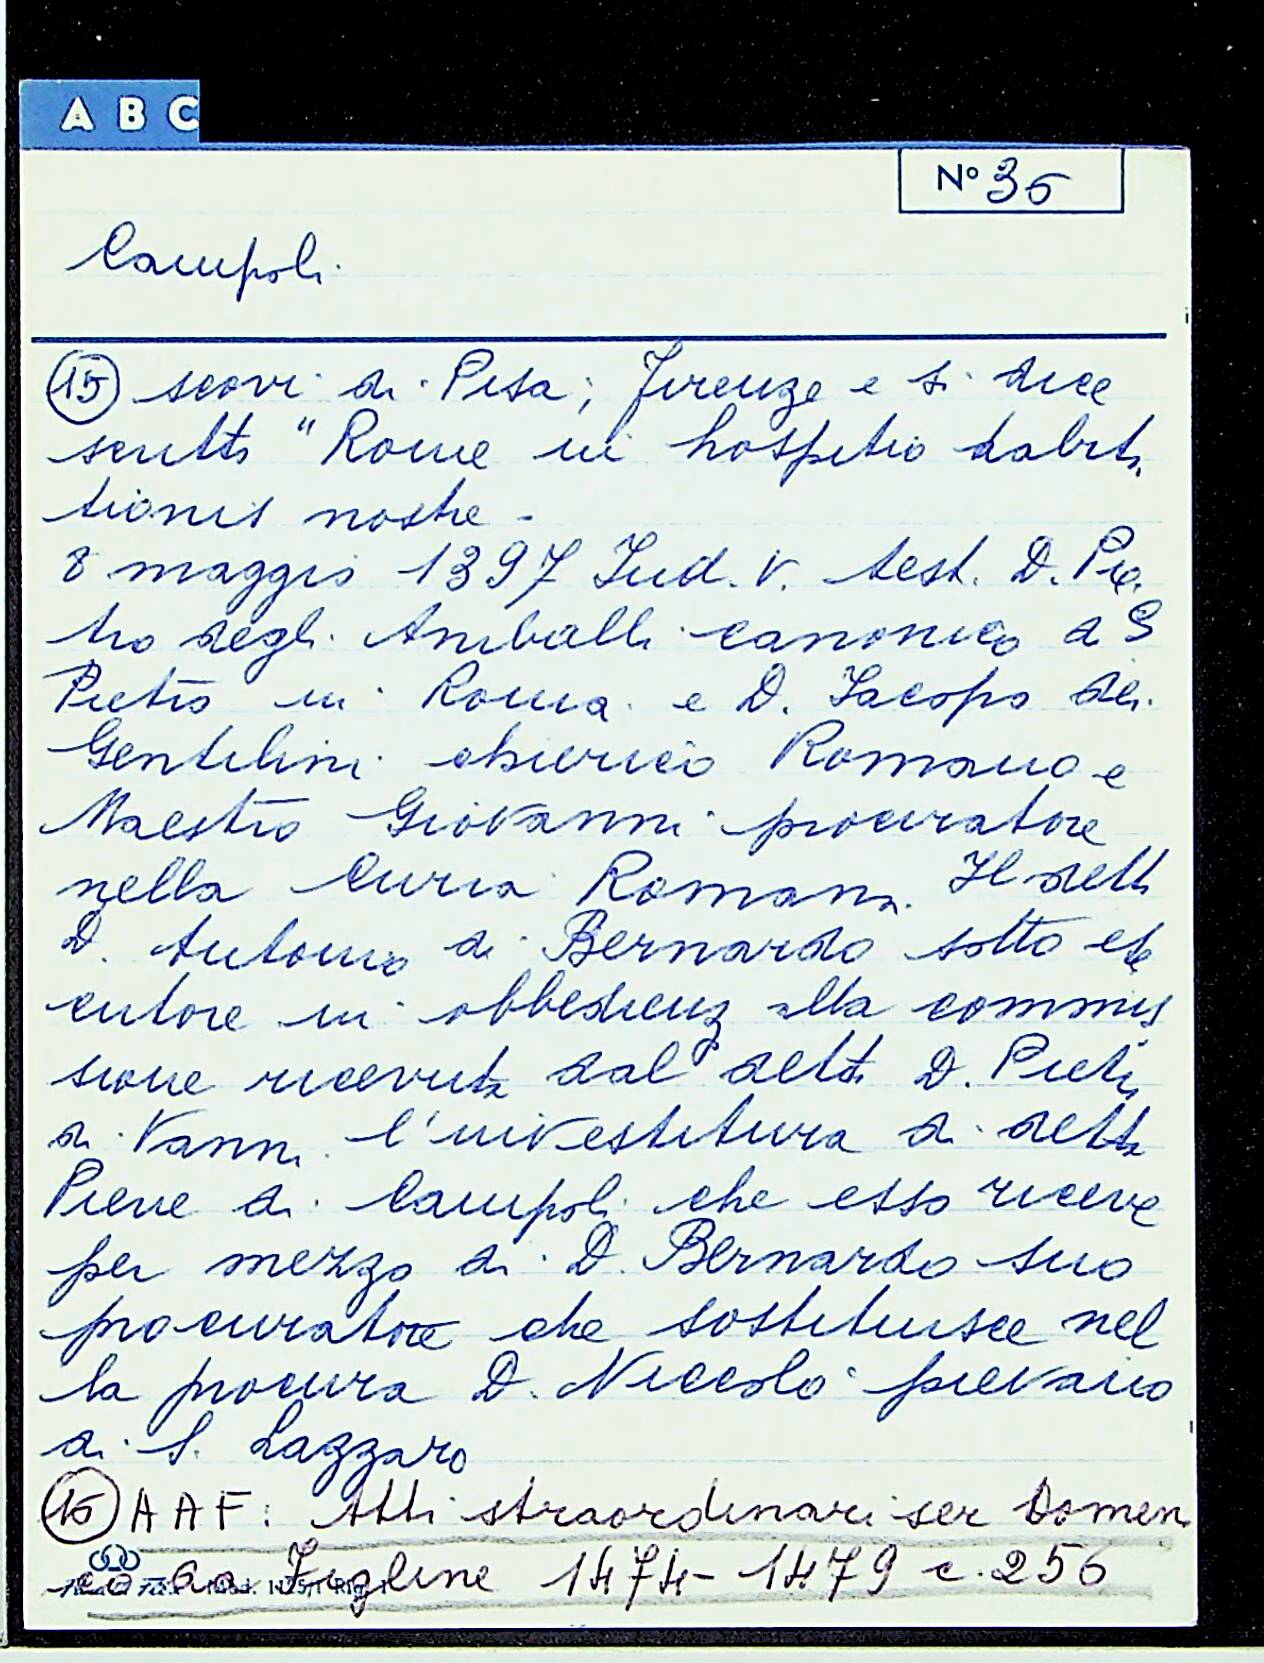 A B C
N° 35
Campoli
(15) scovi di Pisa; Firenze e si dice
scritto "Rome in hospitio habita
tionis nostre -
8 maggio 1397 Ind. V. test. D. Pie
tro degli Aniballi canonico di S
Pietro in Roma e D. Iacopo dei
Gentilini chierico Romano e
Maestro Giovanni procuratore
nella Curia Romana. Il detto
D. Antonio di Bernardo sotto ese
cutore in obbedienza alla commis
sione ricevuta dal detto D. Pietro
di Vanni l'investitura di detta
Pieve di Campoli che esso riceve
per mezzo di D. Bernardo suo
procuratore che sostituisce nel
la procura D. Niccolò pievano
di S. Lazzaro
(16) A A F: Atti straordinari ser Domen
co da Figline 1474-1479 c. 256